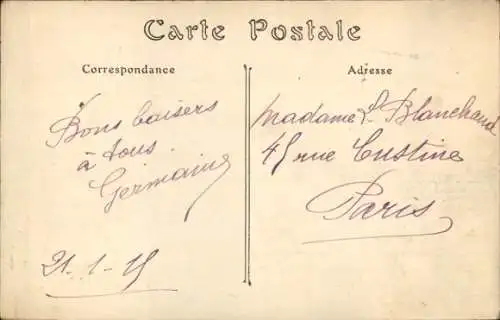 Carte Postale
Correspondance
Bons baisers
à tous.
Germaine
21-1-15
Adresse
Madame Blanchaud
45 rue Custine
Paris